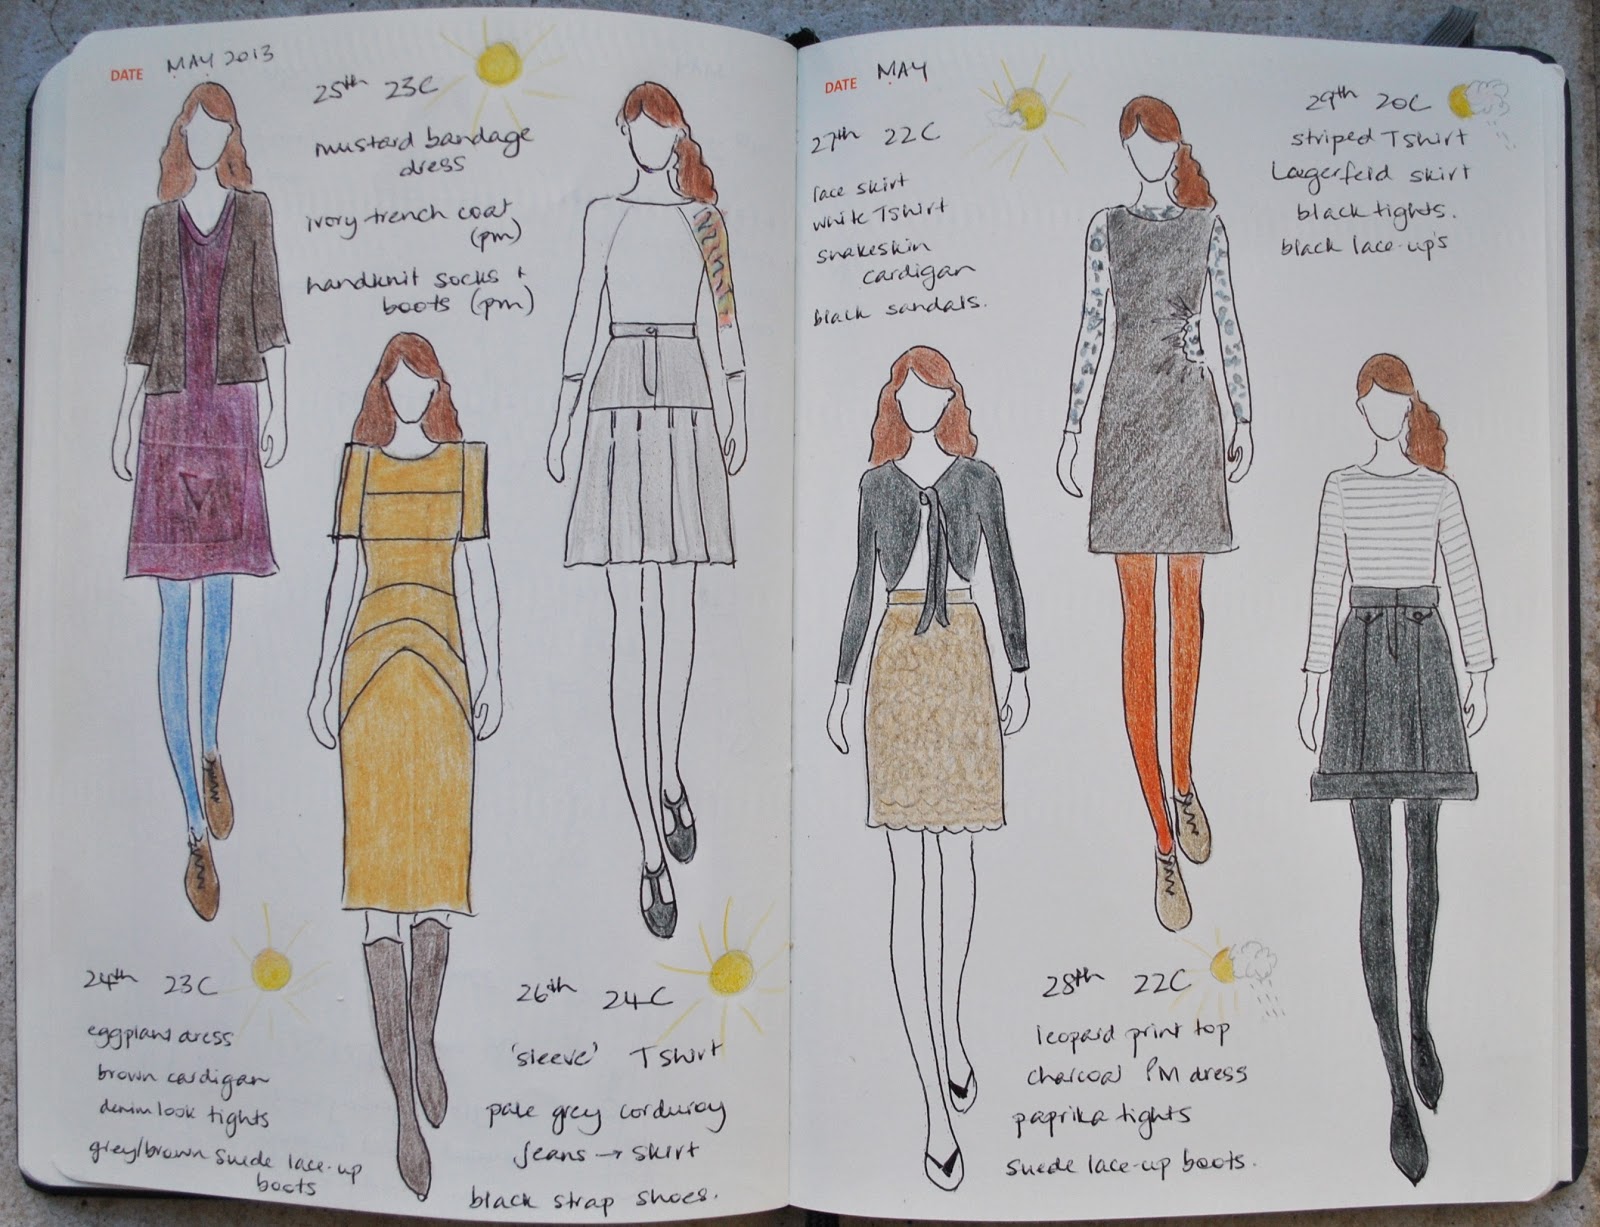 DATE MAY 2013
25th 23C
mustard bandage
dress
ivory trench coat
(pm)
handknit socks +
boots (pm)
24th 23C
eggplant dress
brown cardigan
denim look tights
grey/brown suede lace-up
boots
26th 24C
'sleeve' T shirt
pale grey corduroy
jeans → skirt
black strap shoes.
DATE MAY
27th 22C
lace skirt
white T shirt
snakeskin
cardigan
black sandals.
29th 20C
striped T shirt
Lagerfeld skirt
black tights.
black lace-up's
28th 22C
leopard print top
charcoal PM dress
paprika tights
suede lace-up boots.